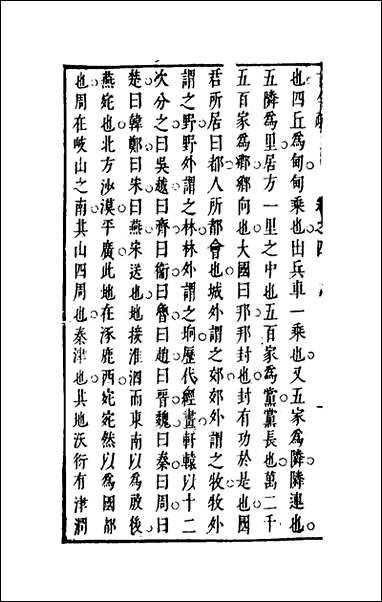 也四丘爲甸甸乘也出兵車一乘也又五家爲隣隣連也
五隣爲里居方一里之中也五百家爲黨黨長也萬二千
五百家爲鄉鄉向也大國曰邦邦封也封有功於是也國
君所居曰都人所都會也城外謂之郊郊外謂之牧牧外
謂之野野外謂之林林外謂之坰歷代經畫軒轅以十二
次分之曰吳越曰齊曰衛曰魯曰趙曰晉魏曰秦曰周曰
楚曰韓鄭曰宋曰燕宋送也地接淮泗而東南以爲殷後
燕姹也北方沙漠平廣此地在涿鹿西姹姹然以爲國都
也周在岐山之南其山四周也秦津也其地沃衍有津潤